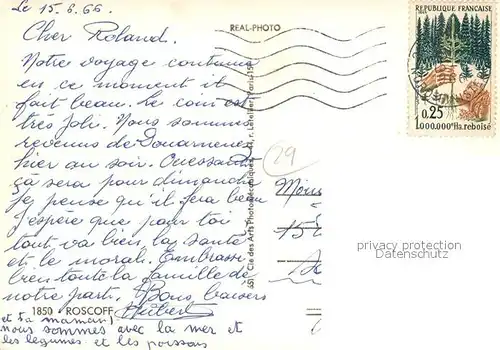 Le 15.6.66.
Cher Roland.
Notre voyage continue
en ce moment il
fait beau. Le coin est
très joli. Nous sommes
revenus de Douarnenez
hier au soir. Ouessant
ça sera pour dimanche
je pense qu'il fera beau
j'espère que pour toi
tout va bien la santé
et le moral. Embrasse
bien toute la famille de
notre part. Bons baisers
1850 ROSCOFF Hubert
et ta maman)
nous sommes avec la mer et
les légumes et les poissons
REAL-PHOTO
Cie des Arts Photomécaniques
REPUBLIQUE FRANCAISE
0,25
1000.000e Ha. reboisé
29
15
privacy protection
Datenschutz